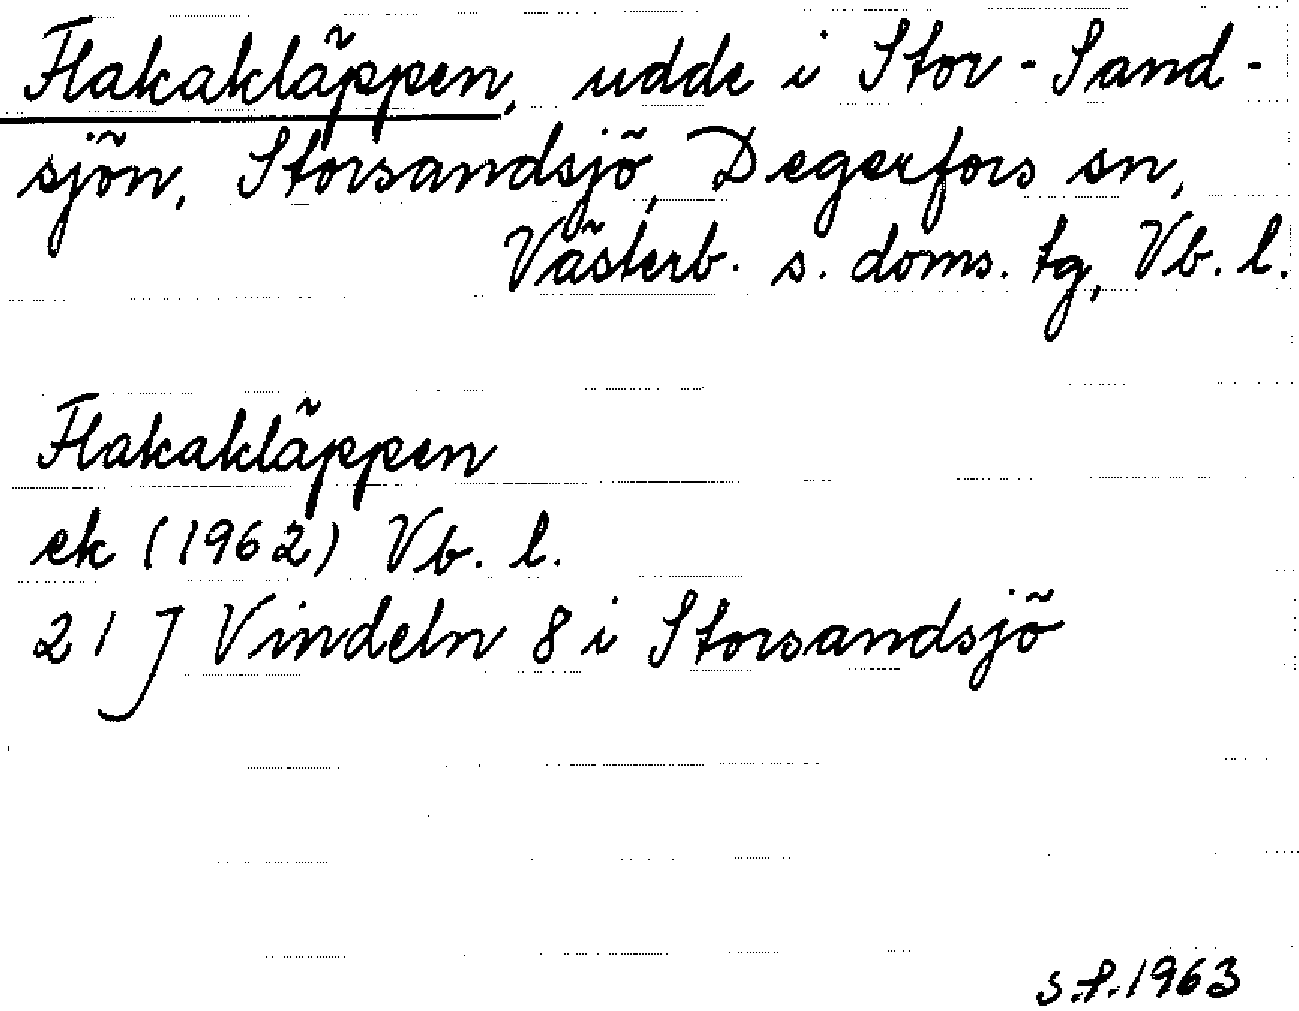 Flakakläppen, udde i Stor-Sand-
sjön, Storsandsjö, Degerfors sn,
Västerb. s. doms. tg, Vb. l.
Flakakläppen
ek (1962) Vb. l.
21 J Vindeln 8 i Storsandsjö
s.f. 1963